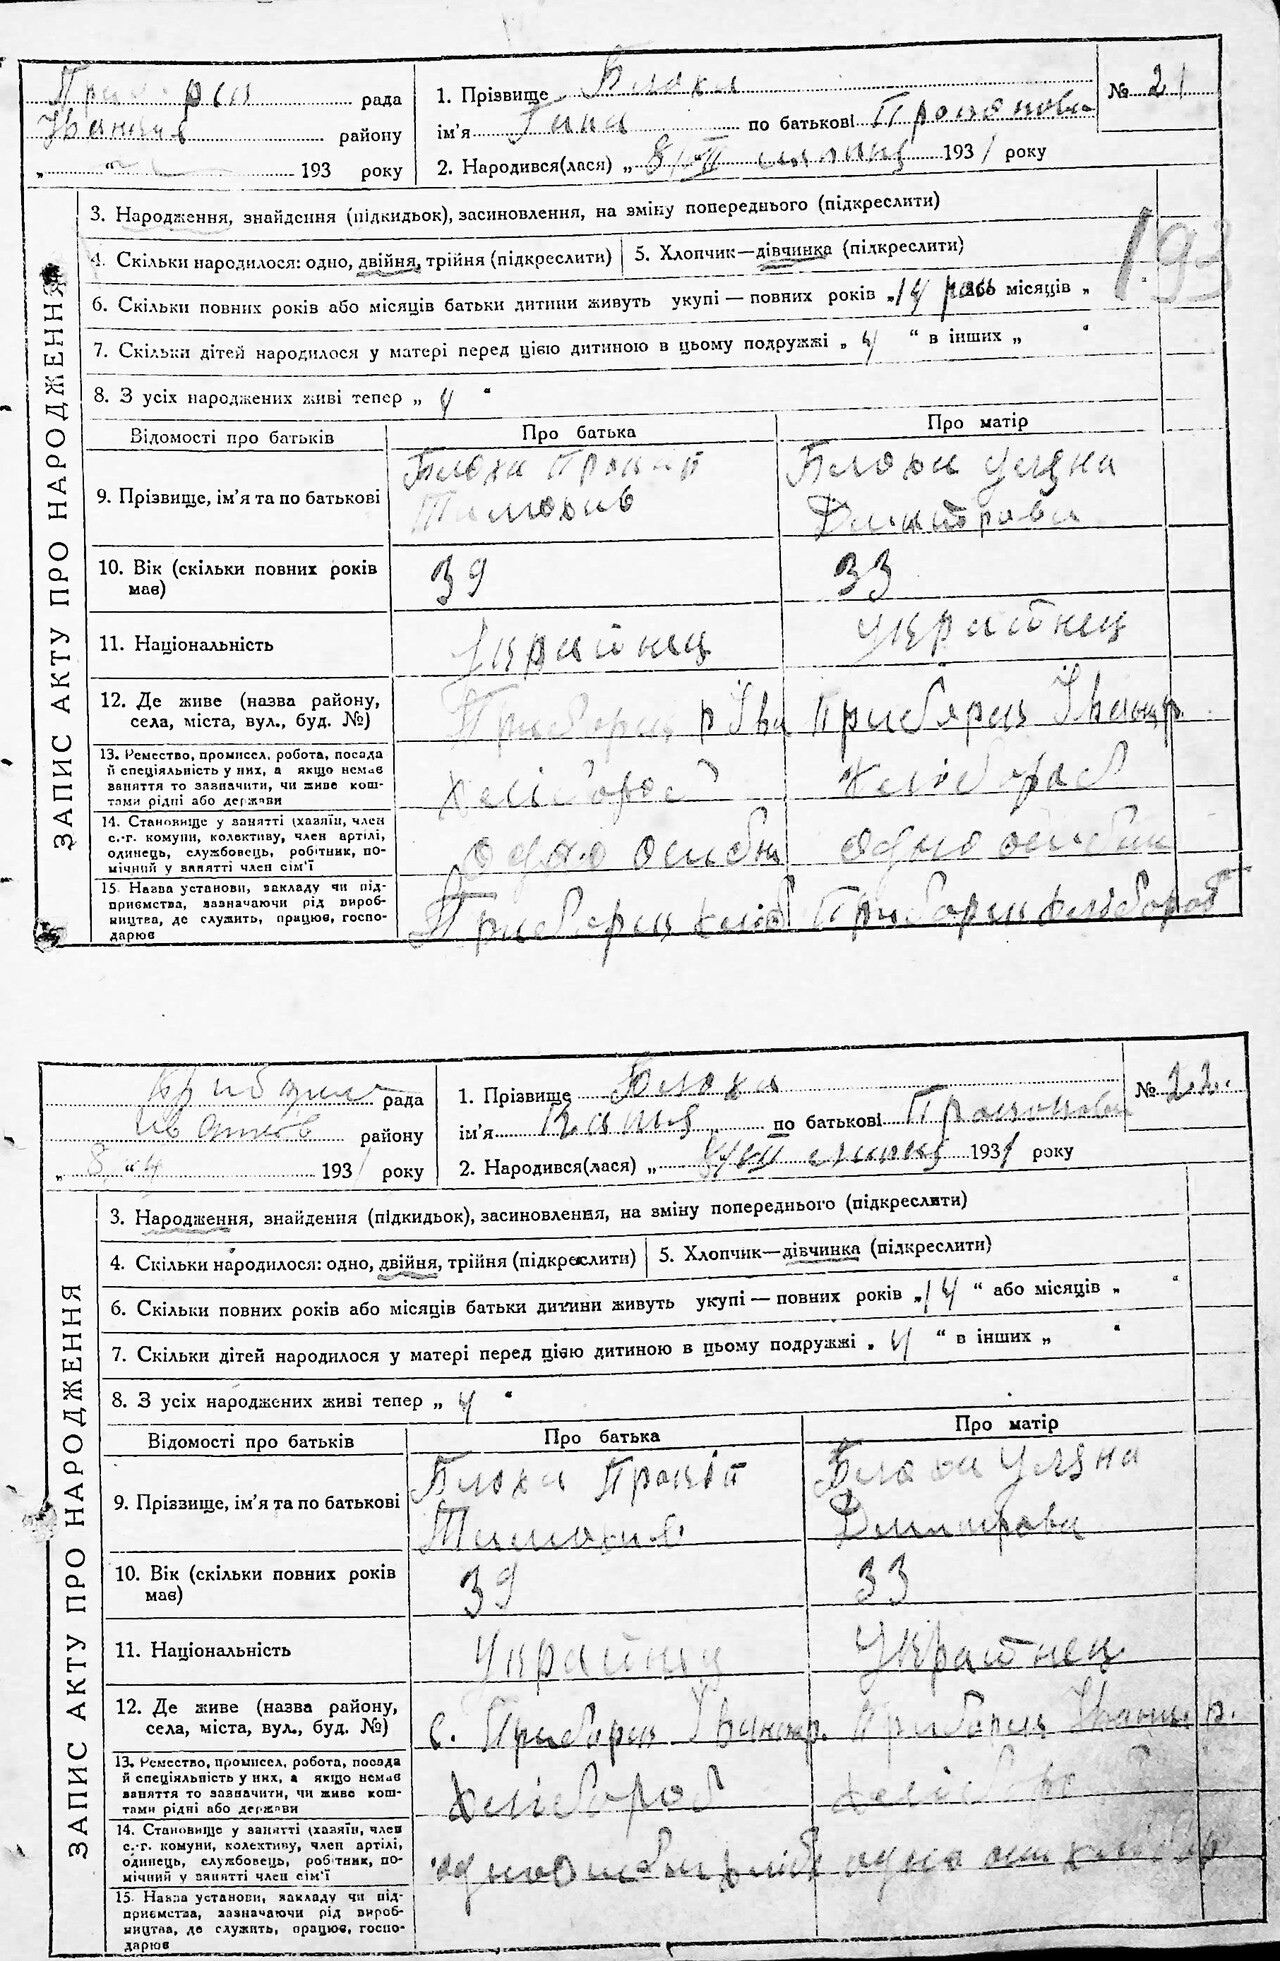 рада
району
193 року
1. Прізвище Блоха
ім'я Ганя по батькові Прокопова
2. Народився(лася) „ 8/VII липня 1931 року
№ 21
193
ЗАПИС АКТУ ПРО НАРОДЖЕННЯ
3. Народження, знайдення (підкидьок), засиновлення, на зміну попереднього (підкреслити)
4. Скільки народилося: одно, двійня, трійня (підкреслити) 5. Хлопчик—дівчинка (підкреслити)
6. Скільки повних років або місяців батьки дитини живуть укупі — повних років „ 14 або місяців „
7. Скільки дітей народилося у матері перед цією дитиною в цьому подружжі „ 4 “ в інших „ “
8. З усіх народжених живі тепер „ 4 “
Відомості про батьків Про батька Про матір
9. Прізвище, ім'я та по батькові
Блоха Прокіп
Блоха Уляна
Дмитрова
10. Вік (скільки повних років
має)
39 33
11. Національність Українец Українец
12. Де живе (назва району,
села, міста, вул., буд. №)
Приборск р Іва Приборск Іванк р.
13. Ремество, промисел, робота, посада
й спеціяльність у них, а якщо немає
заняття то зазначити, чи живе кош-
тами рідні або держави
Хлібороб Хлібороб
14. Становище у занятті (хазяїн, член
с.-г. комуни, колективу, член артілі,
одинець, службовець, робітник, по-
мічний у занятті член сім'ї
15. Назва установи, закладу чи під-
приємства, зазначаючи рід вироб-
ництва, де служить, працює, госпо-
дарює
хлібороб
рада
району
„ 8 “ 193 року
1. Прізвище Блоха
ім'я Катя по батькові Прокопова
2. Народився(лася) „ 8/VII липня 1931 року
№ 22.
ЗАПИС АКТУ ПРО НАРОДЖЕННЯ
3. Народження, знайдення (підкидьок), засиновлення, на зміну попереднього (підкреслити)
4. Скільки народилося: одно, двійня, трійня (підкреслити) 5. Хлопчик—дівчинка (підкреслити)
6. Скільки повних років або місяців батьки дитини живуть укупі — повних років „ 14 “ або місяців „ “
7. Скільки дітей народилося у матері перед цією дитиною в цьому подружжі „ 4 “ в інших „ “
8. З усіх народжених живі тепер „ 4 “
Відомості про батьків Про батька Про матір
9. Прізвище, ім'я та по батькові
Блоха Прокіп
Блоха Уляна
Дмитрова
10. Вік (скільки повних років
має)
39 33
11. Національність Українец Українец
12. Де живе (назва району,
села, міста, вул., буд. №)
с. Приборск Іванк р. Приборск р.
13. Ремество, промисел, робота, посада
й спеціяльність у них, а якщо немає
заняття то зазначити, чи живе кош-
тами рідні або держави
Хлібороб хлібороб
14. Становище у занятті (хазяїн, член
с.-г. комуни, колективу, член артілі,
одинець, службовець, робітник, по-
мічний у занятті член сім'ї
15. Назва установи, закладу чи під-
приємства, зазначаючи рід вироб-
ництва, де служить, працює, госпо-
дарює